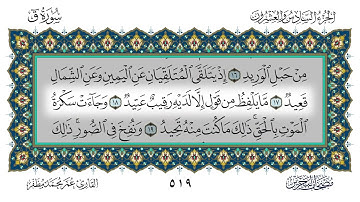 الجزء السادس والعشرون
سورة ق
مِنْ حَبْلِ ٱلْوَرِيدِ ١٦ إِذْ يَتَلَقَّى ٱلْمُتَلَقِّيَانِ عَنِ ٱلْيَمِينِ وَعَنِ ٱلشِّمَالِ
قَعِيدٌ ١٧ مَّا يَلْفِظُ مِن قَوْلٍ إِلَّا لَدَيْهِ رَقِيبٌ عَتِيدٌ ١٨ وَجَآءَتْ سَكْرَةُ
ٱلْمَوْتِ بِٱلْحَقِّ ۖ ذَٰلِكَ مَا كُنتَ مِنْهُ تَحِيدُ ١٩ وَنُفِخَ فِي ٱلصُّورِ ۚ ذَٰلِكَ
٥١٩
القارئ عمر محمد مظفر